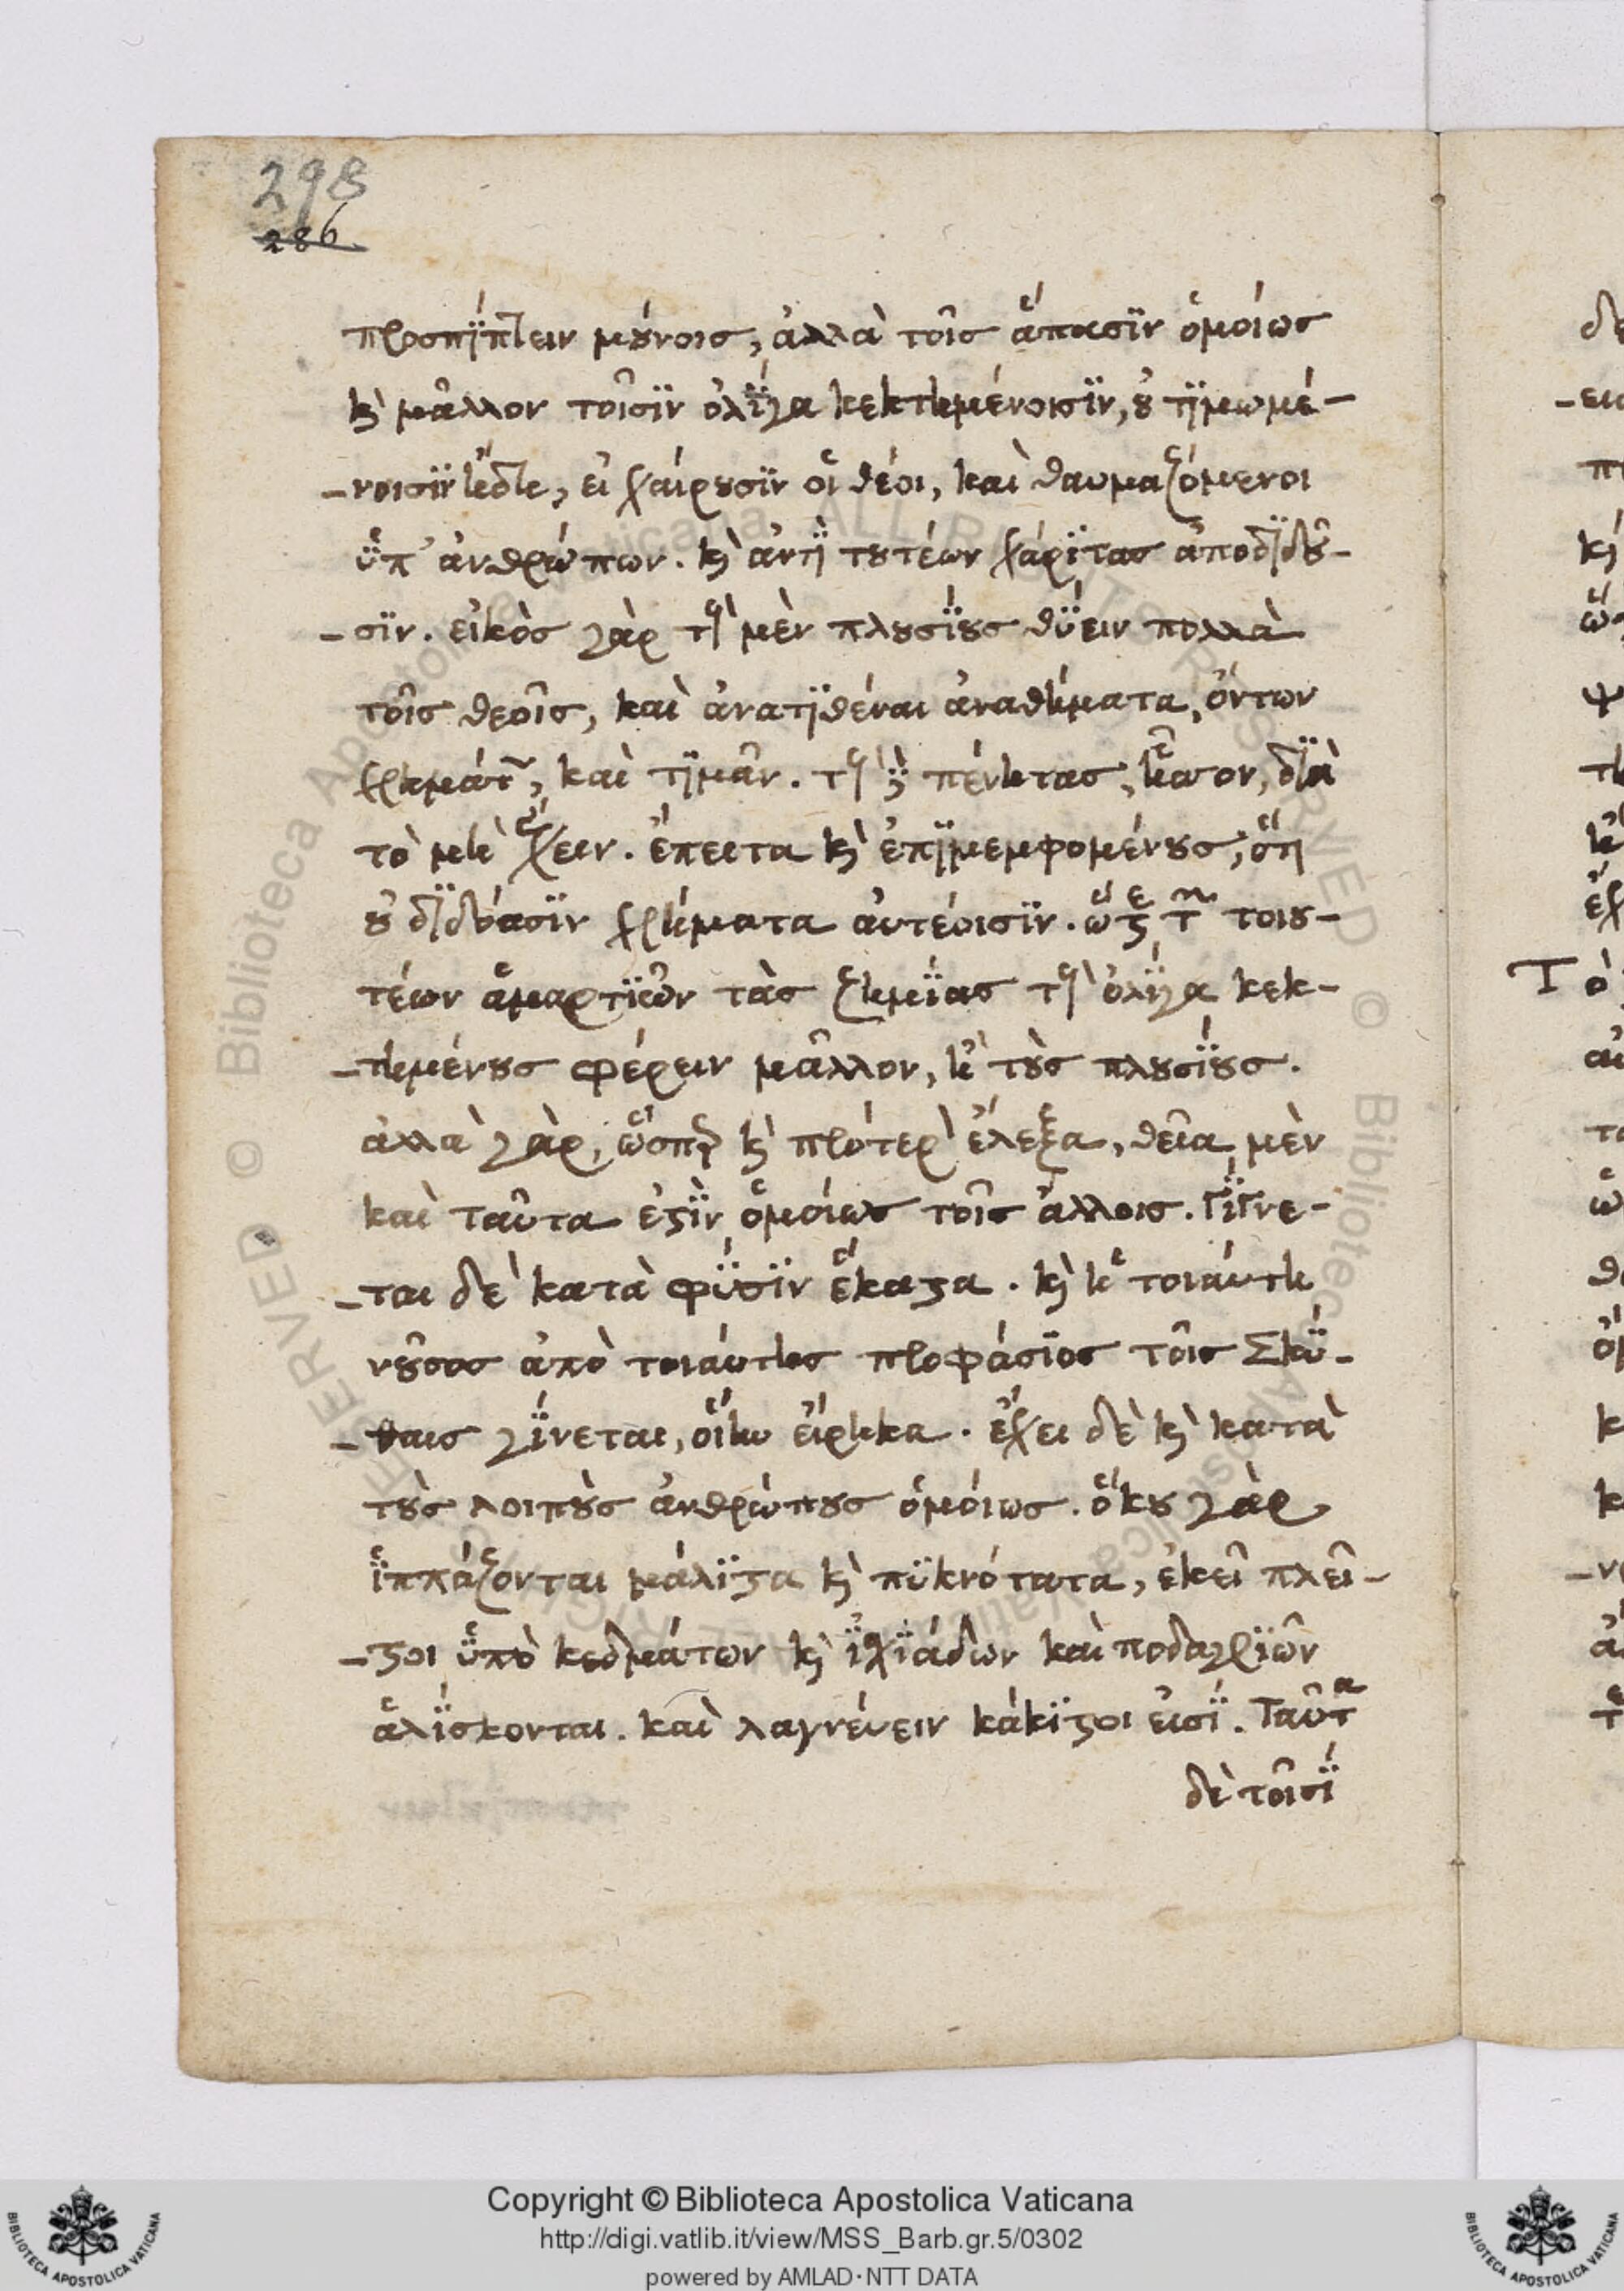 298
286
προσπΐπτειν μούνοις, ἀλλὰ τοῖς ἅπασϊν ὁμοίως
καὶ μᾶλλον τοῖσϊν ὀλΐγα κεκτημένοισϊν, οὐ τϊμωμέ-
-νοισϊν ἤδη, εἰ χαίρουσϊν οἱ θέοι, καὶ θαυμαζόμενοι
ὑπ' ἀνθρώπων. καὶ ἀντῒ τουτέων χάρϊτας ἀποδϊδοῦ-
-σϊν. εἰκὸς γὰρ τοὺς μὲν πλουσΐους θΰειν πολλὰ
τοῖς θεοῖς, καὶ ἀνατϊθέναι ἀναθήματα, ὄντων
χρημάτων, καὶ τϊμᾶν. τοὺς δὲ πένητας, ἧσσον, δϊὰ
τὸ μὴ ἔχειν. ἔπειτα καὶ ἐπϊμεμφομένους, ὅτι
οὐ δϊδόασϊν χρήματα αὐτέοισϊν. ὥστε τῶν τοιου-
τέων ἁμαρτϊῶν τὰς ζημΐας τοὺς ὀλΐγα κεκ-
-τημένους φέρειν μᾶλλον, ἢ τοὺς πλουσΐους.
ἀλλὰ γὰρ, ὥσπερ καὶ πρότερον ἔλεξα, θεῖα μὲν
καὶ ταῦτα ἐστῒν ὁμοίως τοῖς ἄλλοις. γΐγνε-
-ται δὲ κατὰ φΰσϊν ἕκαστα. καὶ ἡ τοιάυτη
νοῦσος ἀπὸ τοιάυτης προφάσϊος τοῖς Σκΰ-
-θαις γΐνεται, οἵην εἴρηκα. ἔχει δὲ καὶ κατὰ
τοὺς λοιποὺς ἀνθρώπους ὁμόιως. ὅκου γὰρ
ἱππάζονται μάλϊστα καὶ πϋκνότατα, ἐκεῖ πλεῖ-
-στοι ὑπὸ κεδμάτων καὶ ἰσχϊάδων καὶ ποδαγρϊῶν
ἁλΐσκονται. καὶ λαγνέυειν κάκϊστοι εἰσΐ. Ταῦτα
δὲ τοῖσΐ
Copyright © Biblioteca Apostolica Vaticana
http://digi.vatlib.it/view/MSS_Barb.gr.5/0302
powered by AMLAD·NTT DATA